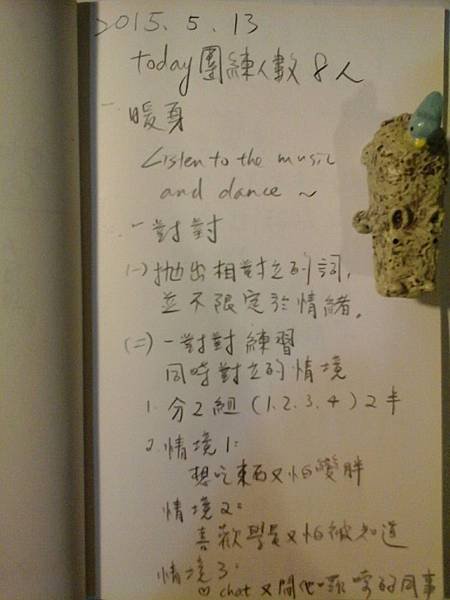 2015. 5. 13
today團練人數8人
一. 暖身
Listen to the music
and dance ~
二. 一對對
(一) 拋出相對立的詞,
並不限定於情緒。
(二) 一對對練習
同時對立的情境
1. 分2組 (1.2.3.4) 2半
2. 情境1:
想吃東西又怕變胖
情境2:
喜歡學員又怕被知道
情境3:
♡ chat 又
的同事